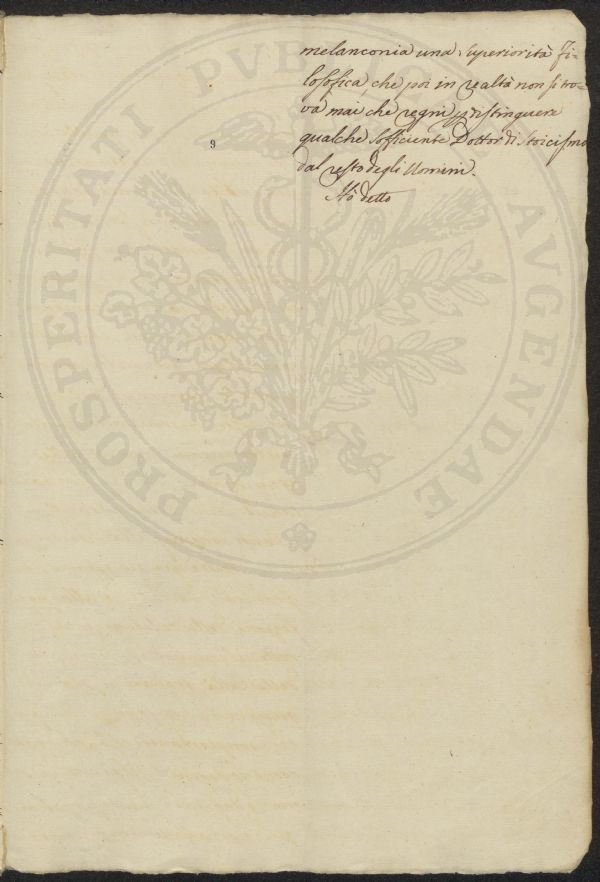 melanconia una superiorità fi-
losofica, che poi in realtà non si tro-
va mai che regni p distinguere
qualche Sofficiente Dottor di Stoicismo
dal resto degli Uomini.
Hò detto
9
PROSPERITATI PUBLICAE AVGENDAE